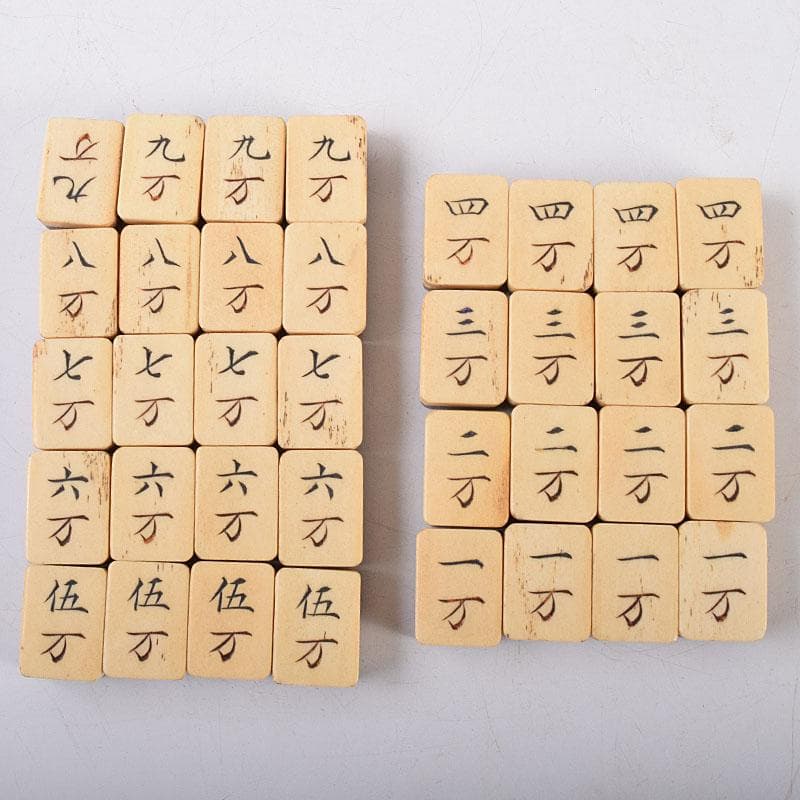 九万 九万 九万 九万
八万 八万 八万 八万
七万 七万 七万 七万
六万 六万 六万 六万
伍万 伍万 伍万 伍万
四万 四万 四万 四万
三万 三万 三万 三万
二万 二万 二万 二万
一万 一万 一万 一万